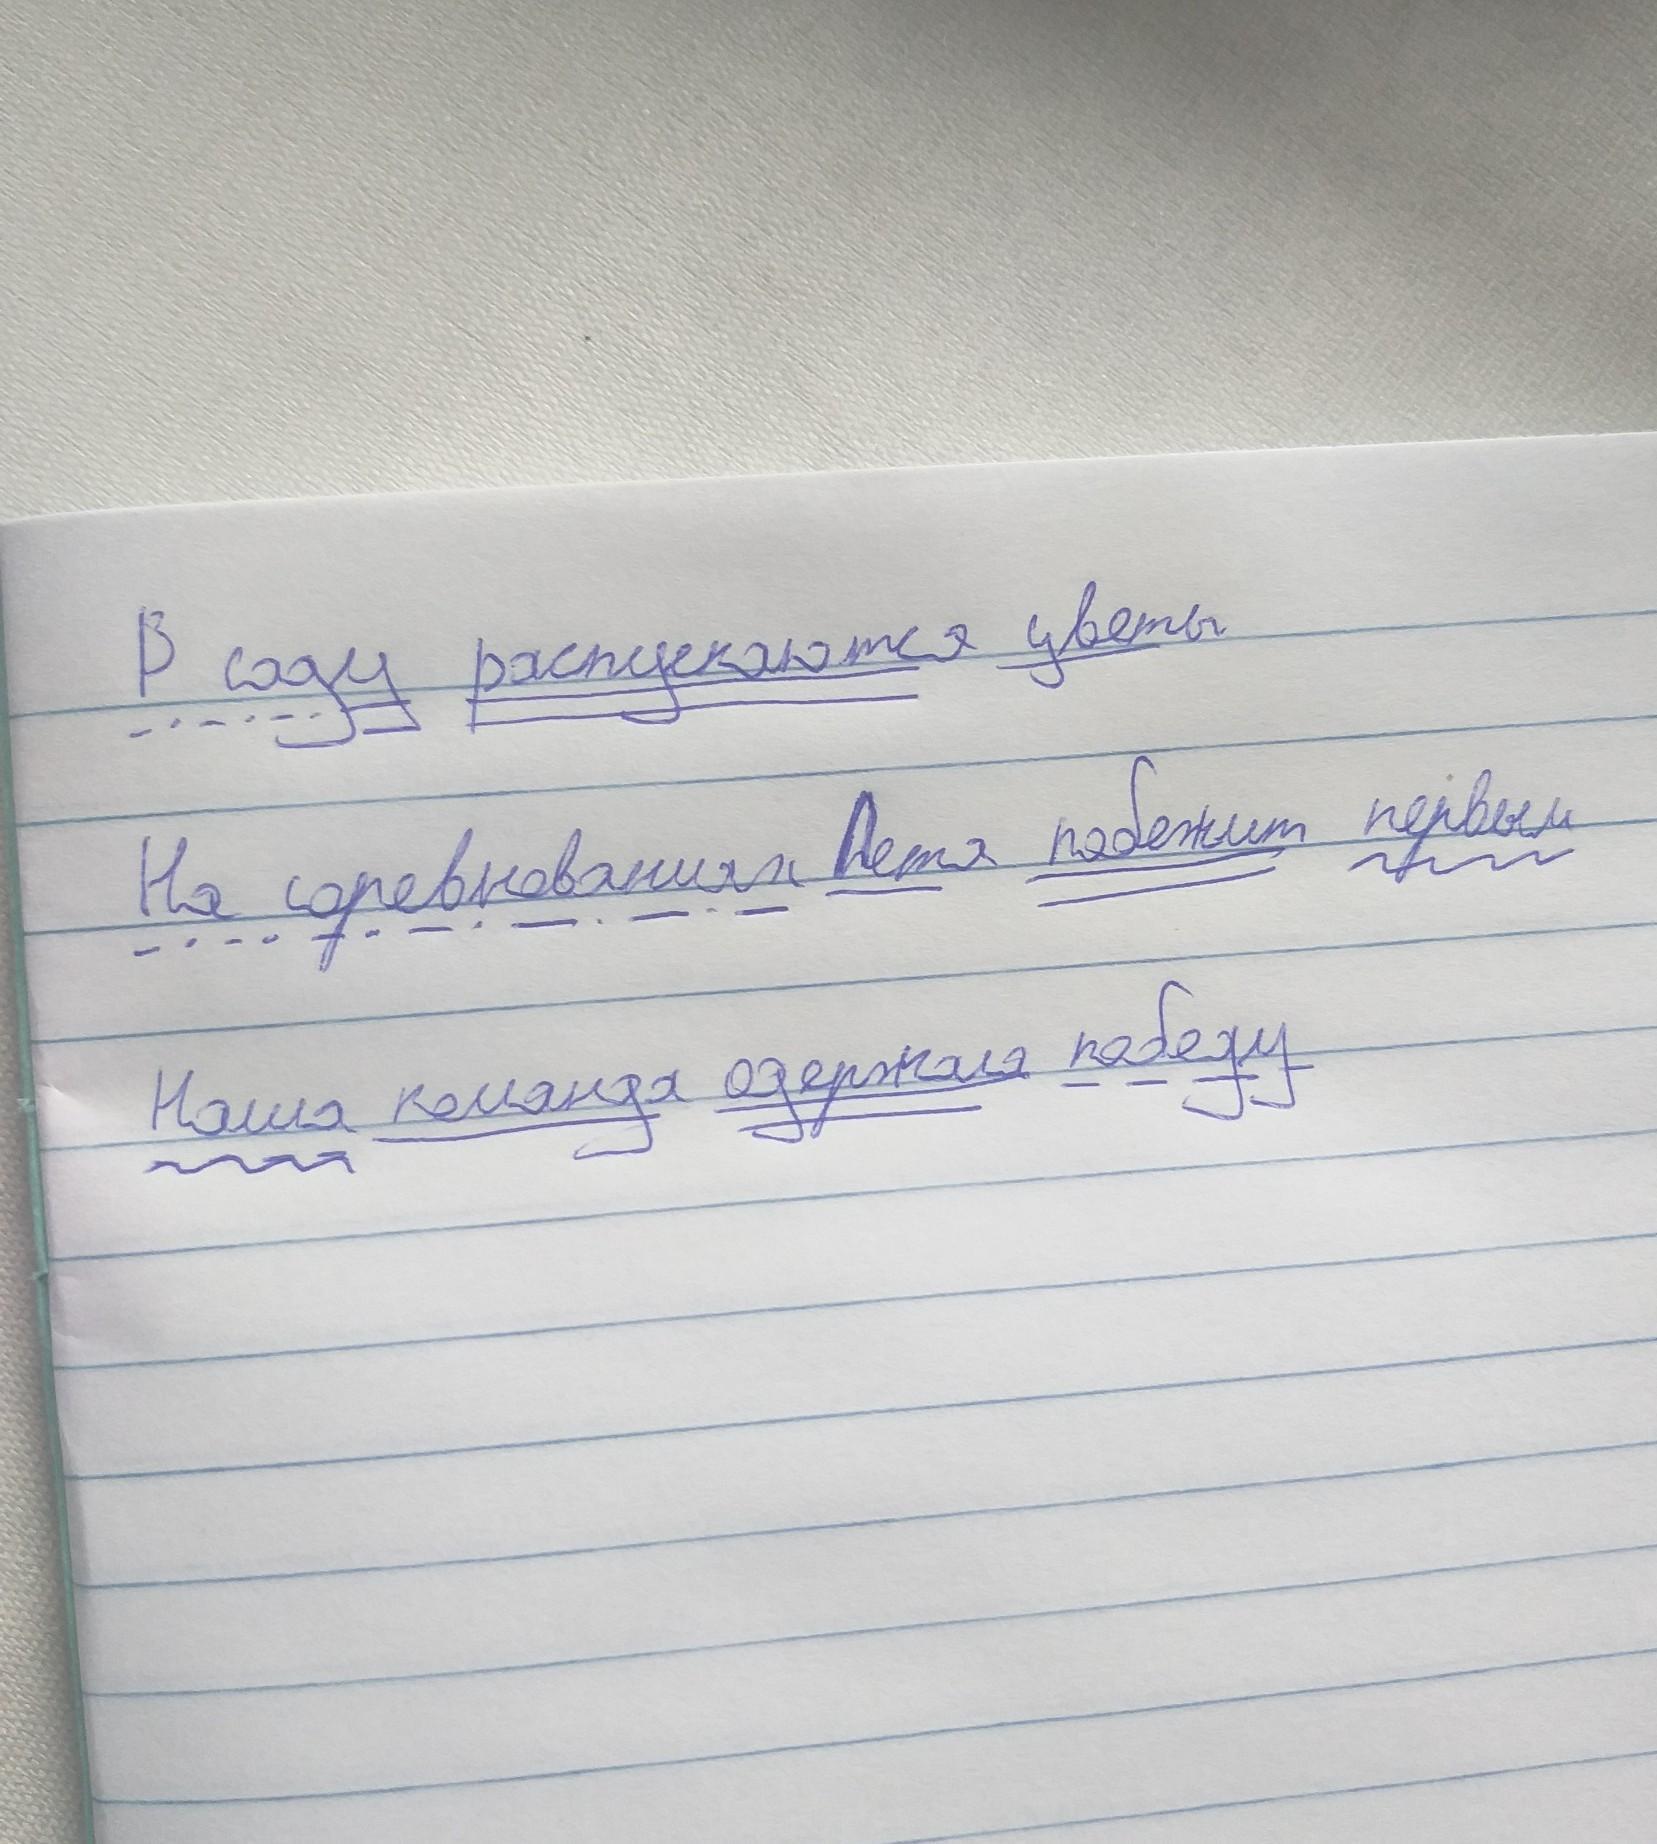 В саду распускаются цветы
На соревнованиях Петя побежит первым
Наша команда одержала победу